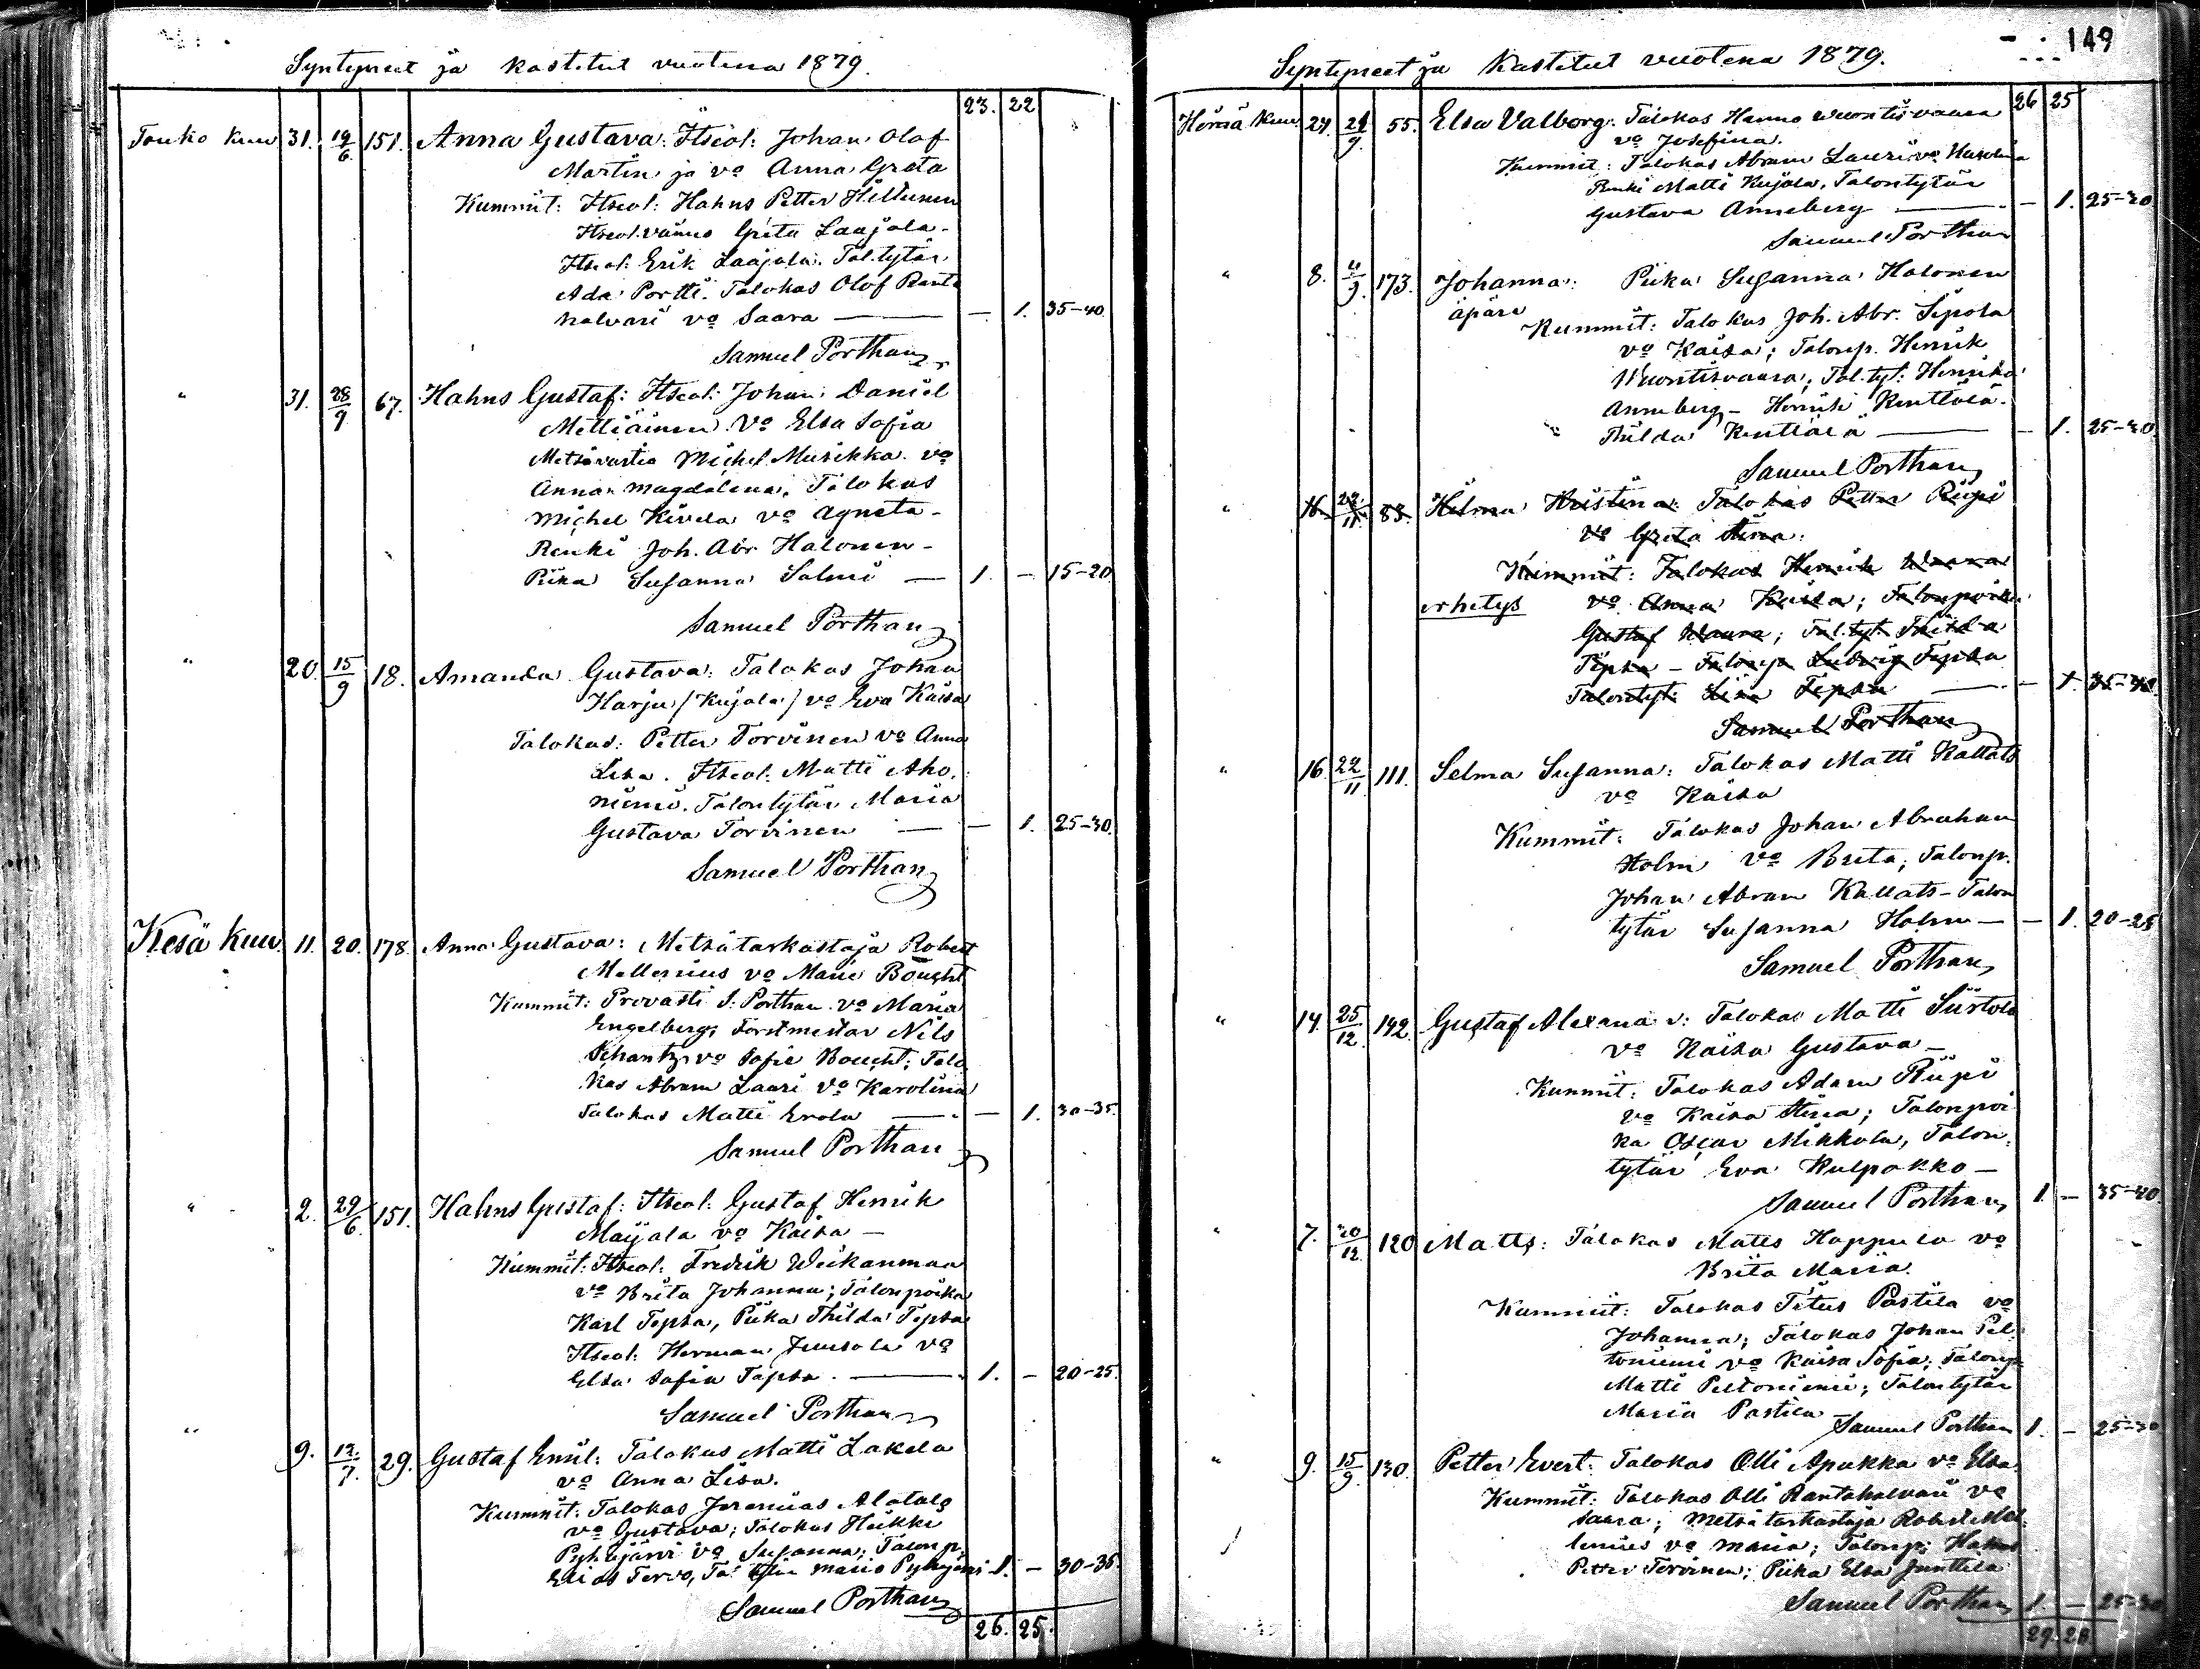 Syntyneet ja kastetut vuotena 1879.
23. 22
Touko kuu 31. 19/6. 151. Anna Gustava: Itseol: Johan Olof
Martin ja vo Anna Greta
Kummit: Itseol: Hahns Petter Hiltunen
Itseol. vaimo Greta Laajala.
Itseol: Erik Laajala. Tal.tytär
Ada Portti. Talokas Olof Ranta
halvari vo Saara — — 1. 35-40.
Samuel Porthan
" 31. 28/9 67. Hahns Gustaf: Itseol: Johan Daniel
Mettiäinen Vo Elsa Sofia
Metsävartia Michel Musikka vo
Anna Magdalena. Talokas
Michel Kivela vo Agneta -
Renki Joh. Abr. Halonen -
Piika Susanna Salmi — 1. — 15-20
Samuel Porthan
" 20. 15/9 18. Amanda Gustava: Talokas Johan
Harju / Kujala / vo Eva Kaisa
Talokas: Petter Torvinen vo Anna
Lisa. Itseol: Matti Aho.
niemi. Talontytär Maria
Gustava Torvinen — — 1. 25-30
Samuel Porthan
Kesä kuu 11. 20. 178. Anna Gustava: Metsätarkastaja Robert
Mellenius vo Marie Bought
Kummit: Provasti S. Porthan vo Maria
Engelberg; Forstmestar Nils
Schantz vo Sofie Boucht; Talo
kas Abram Lauri vo Karolina
Talokas Matti Erola — — 1. 30-35.
Samuel Porthan
" 2. 29/6. 151. Hahns Gustaf: Itseol: Gustaf Henrik
Maijala vo Kaisa —
Kummit: Itseol: Fredrik Weikanmaa
vo Brita Johanna; Talonpoika
Karl Tepsa, Piika Thilda Tepsa
Itseol: Herman Juusola vo
Elsa Sofia Tepsa. — 1. — 20-25.
Samuel Porthan
" 9. 12/7. 29. Gustaf Emil: Talokas Matti Lakela
vo Anna Lisa.
Kummit: Talokas Jeremias Alatalo
vo Gustava; Talokas Heikki
Pyhäjärvi vo Susanna; Talonp.
Elias Tervo, Tal tytär Maria Pyhäjärvi 1. — 30-35
Samuel Porthan
26. 25.
149
Syntyneet ja Kastetut vuotena 1879.
26 25
Heinä kuu 24. 21/9 55. Elsa Valborg. Talokas Hannu Wuontisvaara
vo Josefina.
Kummit: Talokas Abram Lauri vo Karolina
Renki Matti Kujala, Talontytär
Gustava Anneberg — — 1. 25-30
Samuel Porthan
" 8. 11/9. 173. Johanna: Piika Susanna Halonen
äpärä
Kummit: Talokas Joh. Abr. Sipola
vo Kaisa; Talonp. Henrik
Wuontisvaara; Tal.tyt: Henrika
Anneberg — Henrik Kenttälä.
Thilda Kenttälä — — 1. 25-30.
Samuel Porthan
" 16. 22/11. 83. Hilma Kristina: Talokas Petter Riipi
vo Greta Stina.
Kummit: Talokas Henrik Waara
erhetys vo Anna Kaisa; Talonpoika
Gustaf Waara; Tal.tyt. Thilda
Tepsa — Talonp. Ludvig Tepsa
Talontyt: Lisa Tepsa — — 1. 35-40.
Samuel Porthan
" 16. 22/11 111. Selma Susanna: Talokas Matti Kallats
vo Kaisa
Kummit: Talokas Johan Abraham
Holm vo Brita; Talonp.
Johan Abram Kallats — Talon
tytär Susanna Holm — — 1. 20-25
Samuel Porthan
" 14. 25/12. 142. Gustaf Alexand r: Talokas Matti Siirtola
vo Kaisa Gustava —
Kummit: Talokas Adam Riipi
vo Kaisa Stina; Talonpoi
ka Oscar Mikkola, Talon
tytär Eva Kulpakko —
Samuel Porthan 1. — 35-40
" 7. 20/12. 120 Matts: Talokas Matts Hoppula vo
Brita Maria.
Kummit: Talokas Titus Pastila vo
Johanna; Talokas Johan Pel
toniemi vo Kaisa Sofia; Talonp
Matti Peltoniemi; Talontytär
Maria Pastila
Samuel Porthan 1. — 25-30
" 9. 15/9. 130. Petter Evert: Talokas Olli Apukka vo Elsa
Kummit: Talokas Olli Rantahalvari vo
Saara; Metsätarkastaja Robert Mel
lenius vo Maria; Talonp: Hahns
Petter Torvinen; Piika Elsa Junttila
Samuel Porthan 1. — 25-30
29. 28